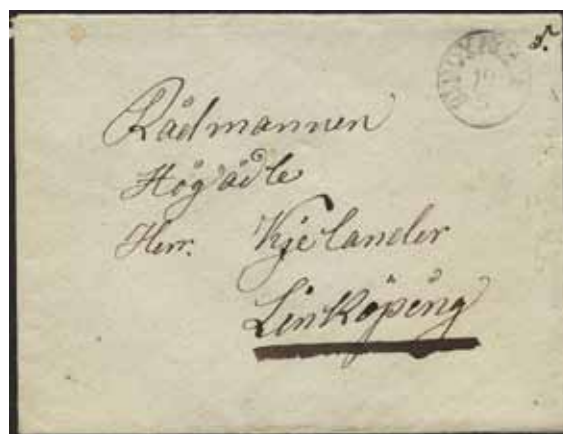 Rådmannen
Högädle
Herr. Kjelander
Linköping